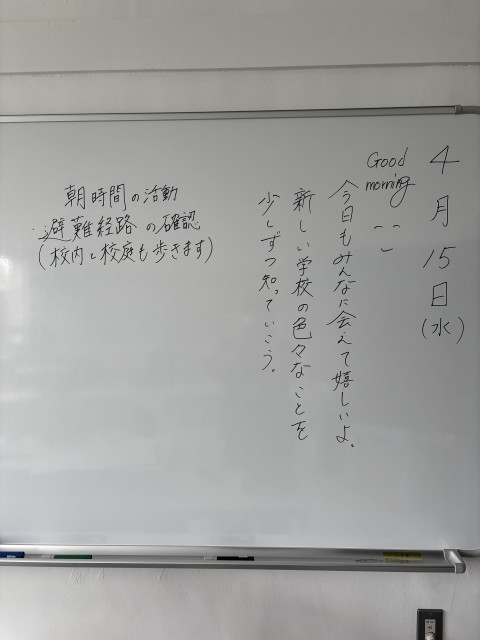 4月15日(水)
Good
morning
今日もみんなに会えて嬉しいよ。
新しい学校の色々なことを
少しずつ知っていこう。
朝時間の活動
・避難経路の確認
(校内と校庭も歩きます)